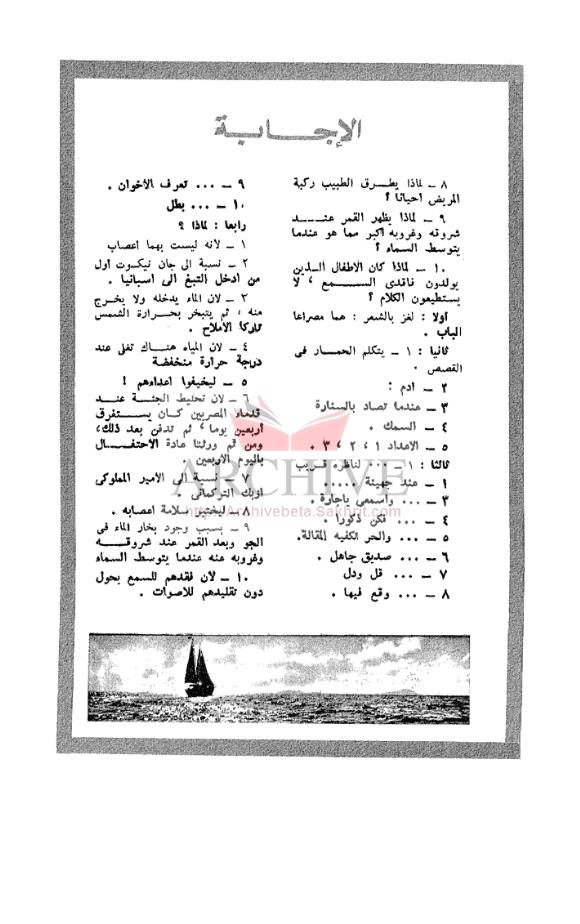 الإجابة
٨ ــ لماذا يطرق الطبيب ركبة
المريض أحيانا ؟
٩ ــ لماذا يظهر القمر عند
شروقه وغروبه أكبر مما هو عندما
يتوسط السماء ؟
١٠ ــ لماذا كان الأطفال الذين
يولدون فاقدى السمع ، لا
يستطيعون الكلام ؟
أولا : لغز بالشعر : هما مصراعا
الباب .
ثانيا : ١ ــ يتكلم الحمار فى
القصص .
٢ ــ آدم :
٣ ــ عندما تصاد بالسنارة
٤ ــ السمك .
٥ ــ الأعداد ١ ، ٢ ، ٣ .
ثالثا : ١ ــ ... لناظره قريب
١ ــ عند جهينة ....
٣ ــ ... واسمعى ياجارة .
٤ ــ ... فكن ذكورا .
٥ ــ ... والحر تكفيه المقالة.
٦ ــ ... صديق جاهل .
٧ ــ ... قل ودل
٨ ــ ... وقع فيها .
٩ ــ ... تعرف الأخوان .
١٠ ــ ... بطل
رابعا : لماذا ؟
١ ــ لأنه ليست بهما أعصاب
٢ ــ نسبة الى جان نيكوت أول
من أدخل التبغ الى أسبانيا .
٣ ــ لأن الماء يدخله ولا يخرج
منه ، ثم يتبخر بحرارة الشمس
تاركا الأملاح .
٤ ــ لأن المياه هناك تغلى عند
درجة حرارة منخفضة
٥ ــ ليخيفوا أعداءهم !
٦ ــ لأن تحنيط الجثة عند
قدماء المصريين كان يستغرق
أربعين يوما ، ثم تدفن بعد ذلك،
ومن ثم ورثنا عادة الاحتفال
باليوم الأربعين .
٧ ــ نسبة الى الأمير المملوكى
أوبك التركمانى .
٨ ــ ليختبر سلامة أعصابه .
٩ ــ بسبب وجود بخار الماء فى
الجو وبعد القمر عند شروقه
وغروبه عنه عندما يتوسط السماء
١٠ ــ لأن فقدهم للسمع يحول
دون تقليدهم للأصوات .
ARCHIVE
http://Archivebeta.Sakhrit.com